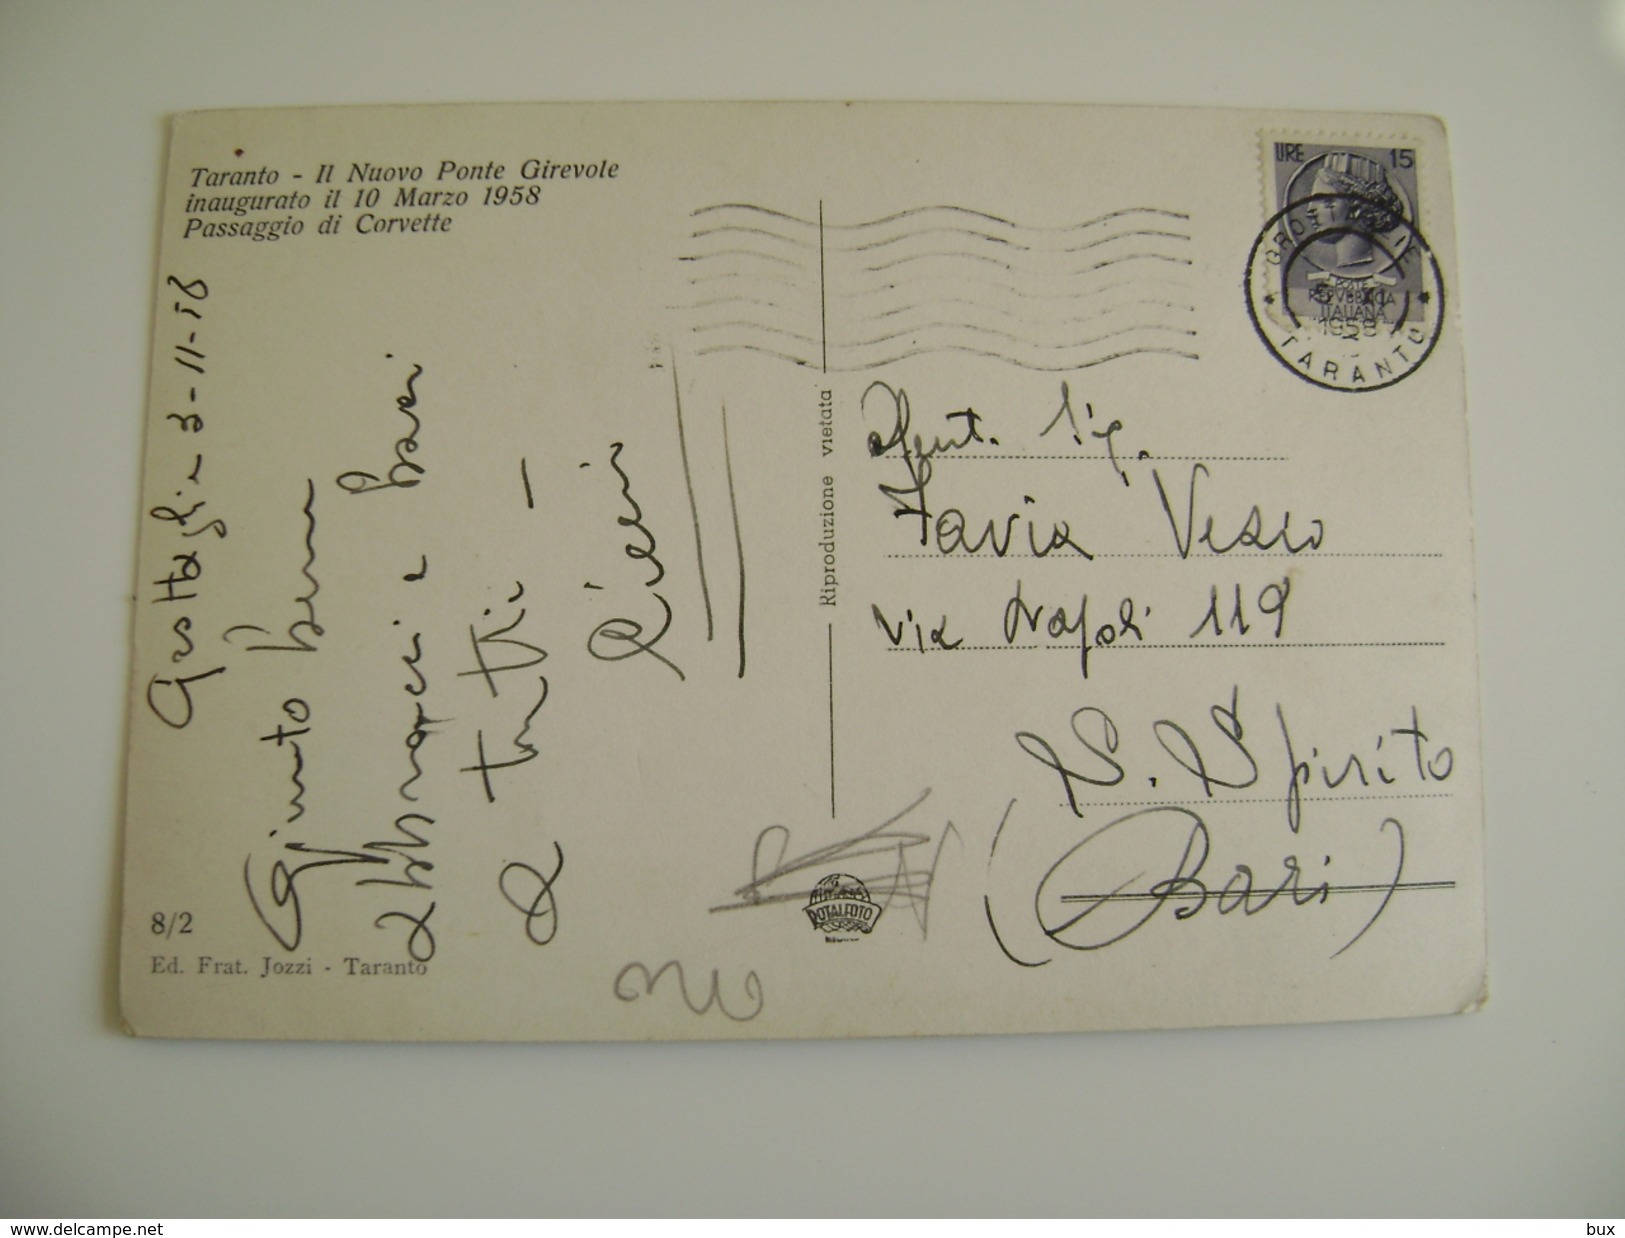 Taranto - Il Nuovo Ponte Girevole
inaugurato il 10 Marzo 1958
Passaggio di Corvette
Grottaglie 3-11-58
Giunto bene
abbracci e baci
a tutti -
8/2
Ed. Frat. Jozzi - Taranto
Riproduzione vietata
ROTALFOTO
LIRE 15
POSTE
REPVBBLICA
ITALIANA
GROTTAGLIE
1958
TARANTO
Gent. Sig.
Vesio
Via Napoli 119
S. Spirito
(Bari)
delcampe.net
bux